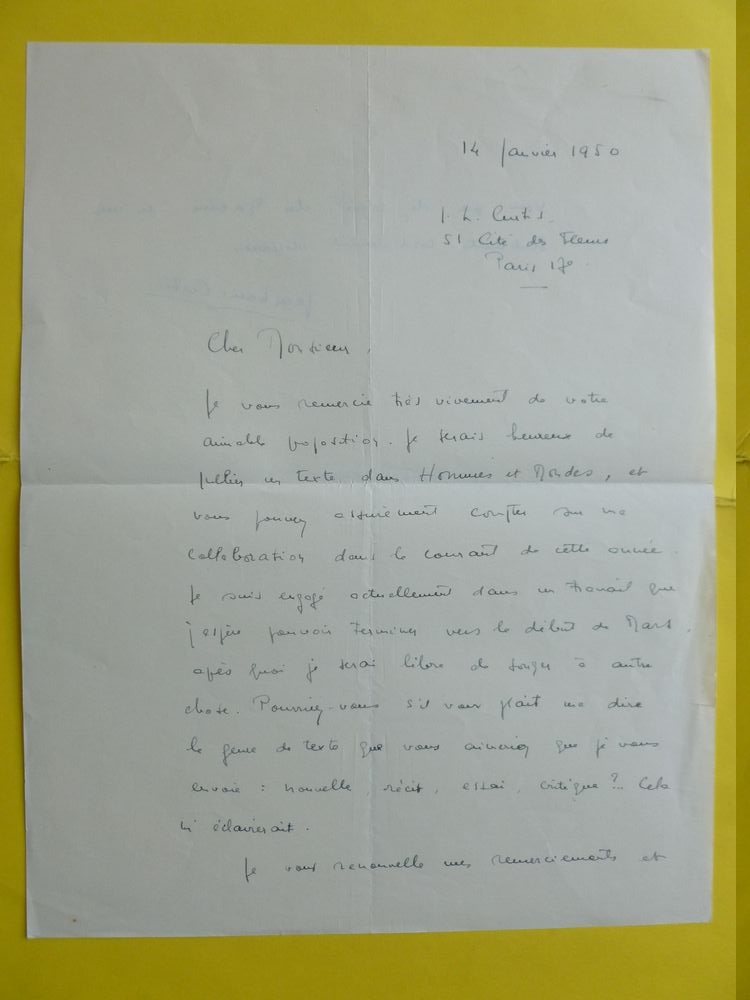 14 Janvier 1950
J. L. Curtis.
51 Cité des Fleurs
Paris 17e.
Cher Monsieur,
Je vous remercie très vivement de votre
aimable proposition. Je serais heureux de
publier un texte dans Hommes et Mondes, et
vous pouvez assurément compter sur ma
collaboration dans le courant de cette année.
Je suis engagé actuellement dans un travail que
j'espère pouvoir terminer vers le début de Mars,
après quoi je serai libre de songer à autre
chose. Pourriez-vous s'il vous plaît me dire
le genre de texte que vous aimeriez que je vous
envoie : nouvelle, récit, essai, critique ?.. Cela
m'éclairerait.
Je vous renouvelle mes remerciements et